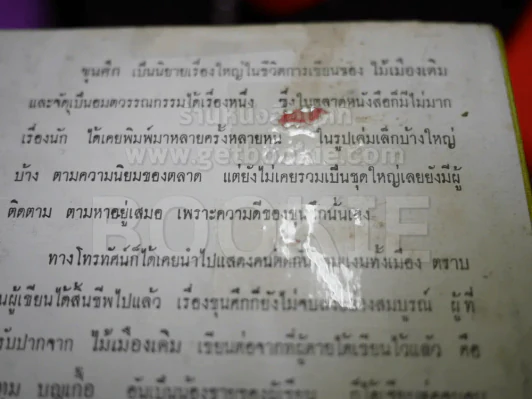 ขุนศึก เป็นนิยายเรื่องใหญ่ในชีวิตการเขียนของ ไม้เมืองเดิม
และจัดเป็นอมตวรรณกรรมได้เรื่องหนึ่ง ซึ่งในตลาดหนังสือก็มีไม่มาก
เรื่องนัก ได้เคยพิมพ์มาหลายครั้งหลายหน ในรูปเล่มเล็กบ้างใหญ่
www.getbookie.com
บ้าง ตามความนิยมของตลาด แต่ยังไม่เคยรวมเป็นชุดใหญ่เลยยังมีผู้
ติดตาม ตามหาอยู่เสมอ เพราะความดีของขุนศึกนั้นเอง
BOOKIE
ทางโทรทัศน์ก็ได้เคยนำไปแสดงคนติดกัน ทั้งเมือง ตราบ
ผู้เขียนได้สิ้นชีพไปแล้ว เรื่องขุนศึกก็ยังไม่จบ สมบูรณ์ ผู้ที่
ปากจาก ไม้เมืองเดิม เรียนต่อจากที่ผู้ตายได้เขียนไว้แล้ว คือ